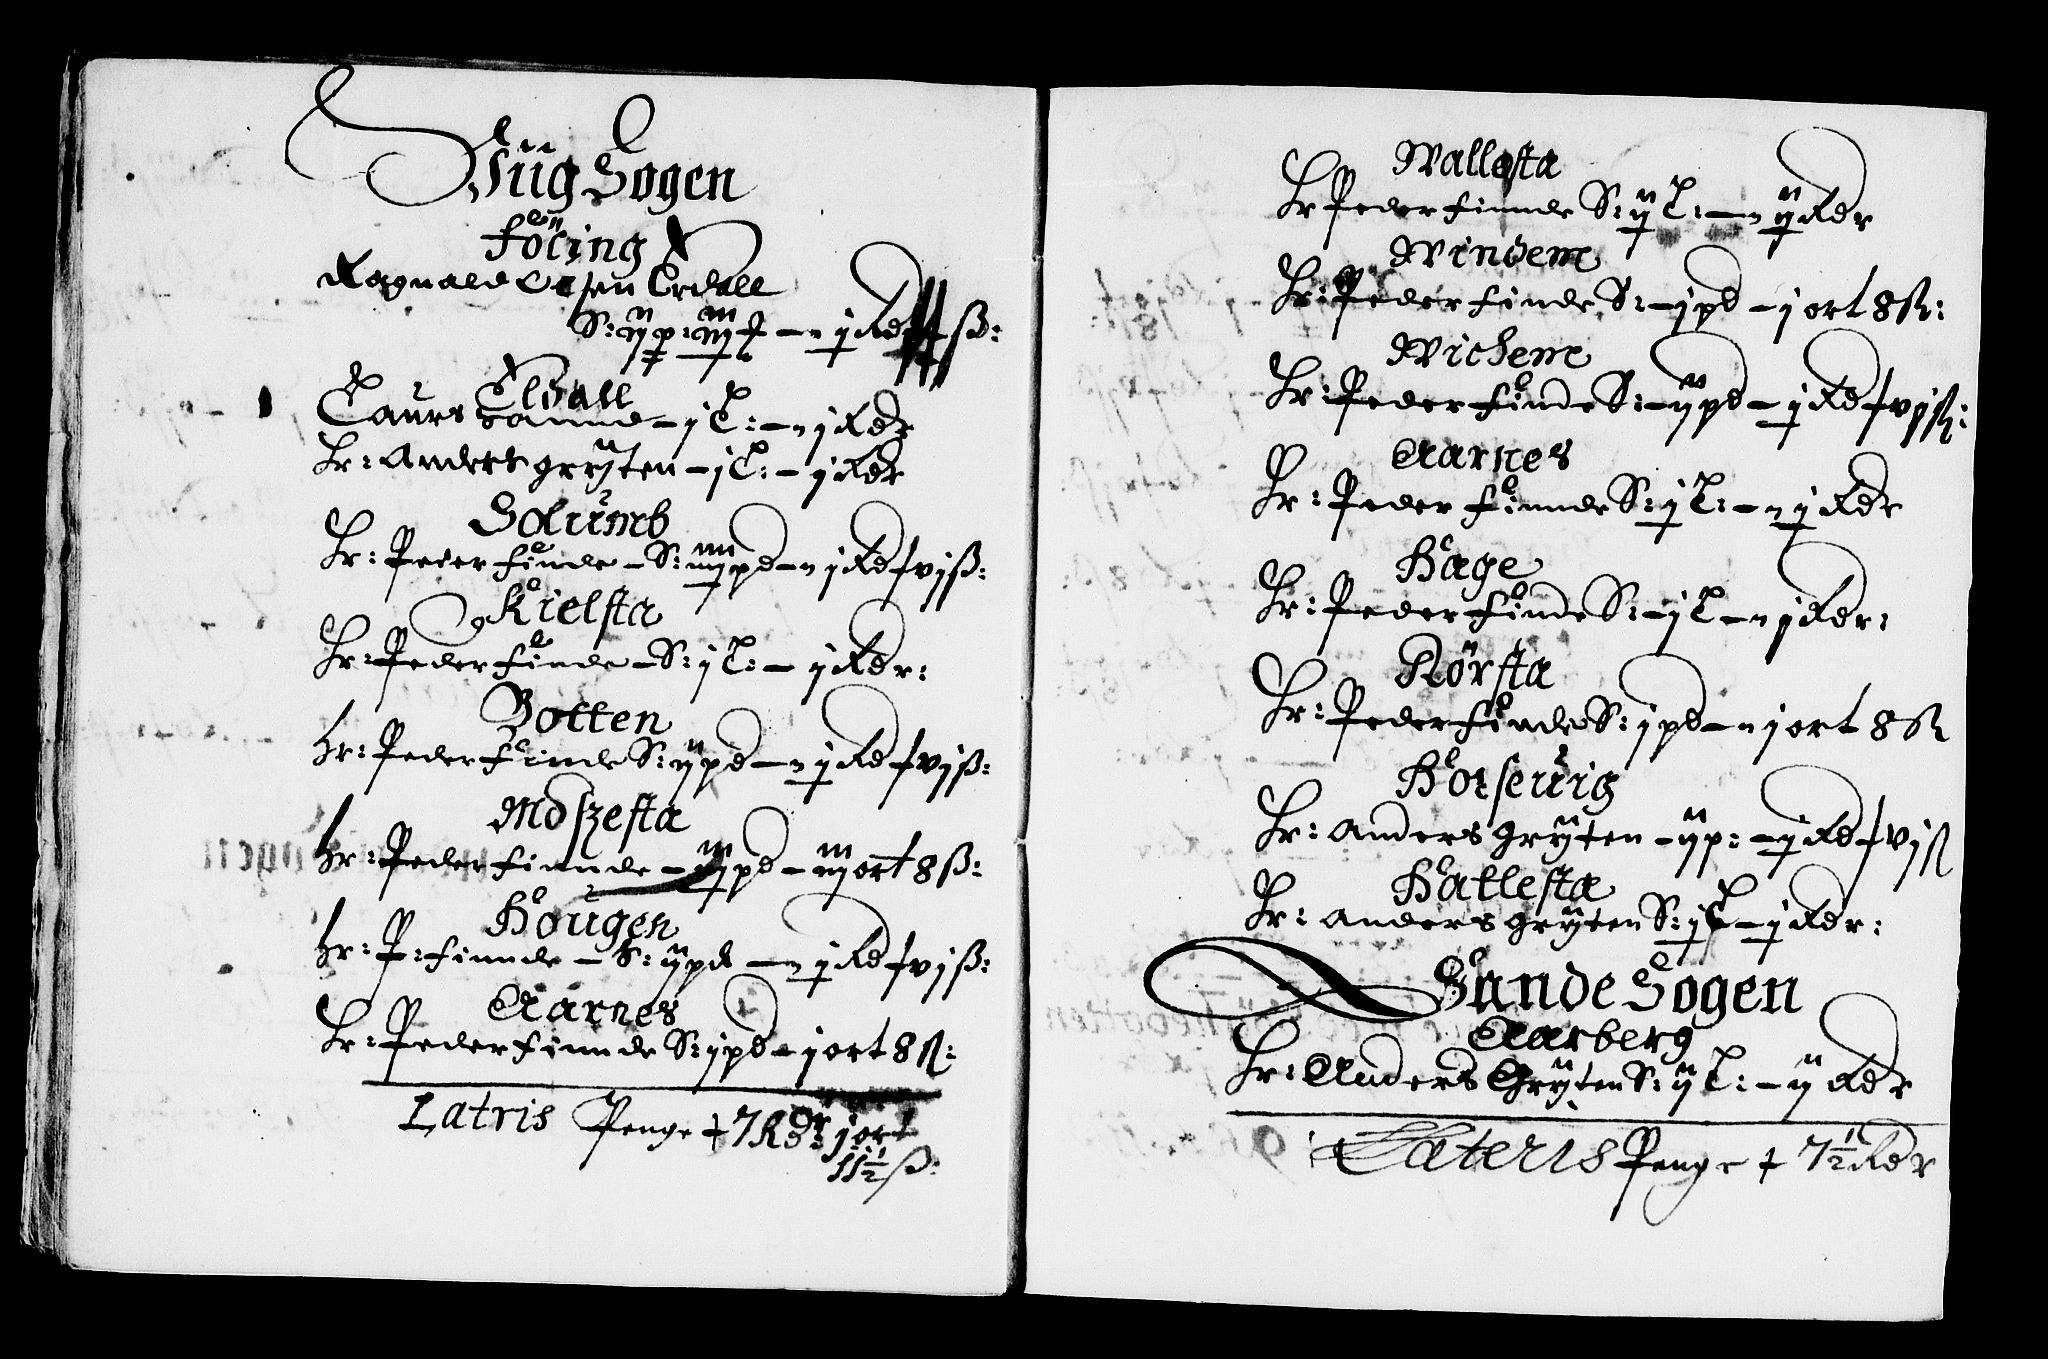 Wiig Sogen
Föling
Ragnald Olsen Erdall
S: ij p: iij f – ij Rdr ß:
Eldall
Laurs – j L: – j Rdr
Hr: Anders gryten – j L: – j Rdr
Solumb
Hr: Peder finde – S: iiij pd – j Rd f vj ß:
Kielsta
Hr: Peder finde – S: j L: – j Rdr:
Botten
Hr: Peder finde S: ij pd – j Rd f vj ß:
Moszesta
Hr: Peder finde – iij pd – iij ort 8 ß:
Hougen
Hr: P: finde – S: ij pd – j Rd f vj ß:
Aarnes
Hr: Peder finde S: j pd – j ort 8 ß:
Latris Penge f 7 Rdr j ort
11½ ß:
Wallesta
Hr Peder finde S: ij L: – ij Rdr
Windem
Hr: Peder finde S: – j pd – j ort 8 ß:
Wichem
Hr: Peder finde S: – ij pd – j Rd f vj ß:
Aarnes
Hr: Peder finde S: j L: – j Rdr
Hage
Hr: Peder finde S: – j L – j Rdr:
Rörsta
Hr: Peder finde S: j pd – j ort 8 ß
Horsewig
Hr: Anders gryten – ij p: – j Rd f vj ß
Hatlesta
Hr: Anders gryten S: j L – j Rdr:
Sande Sogen
Aarberg
Hr: Anders Gryten S: ij L: – ij Rdr
Lateris Penge f 7½ Rdr